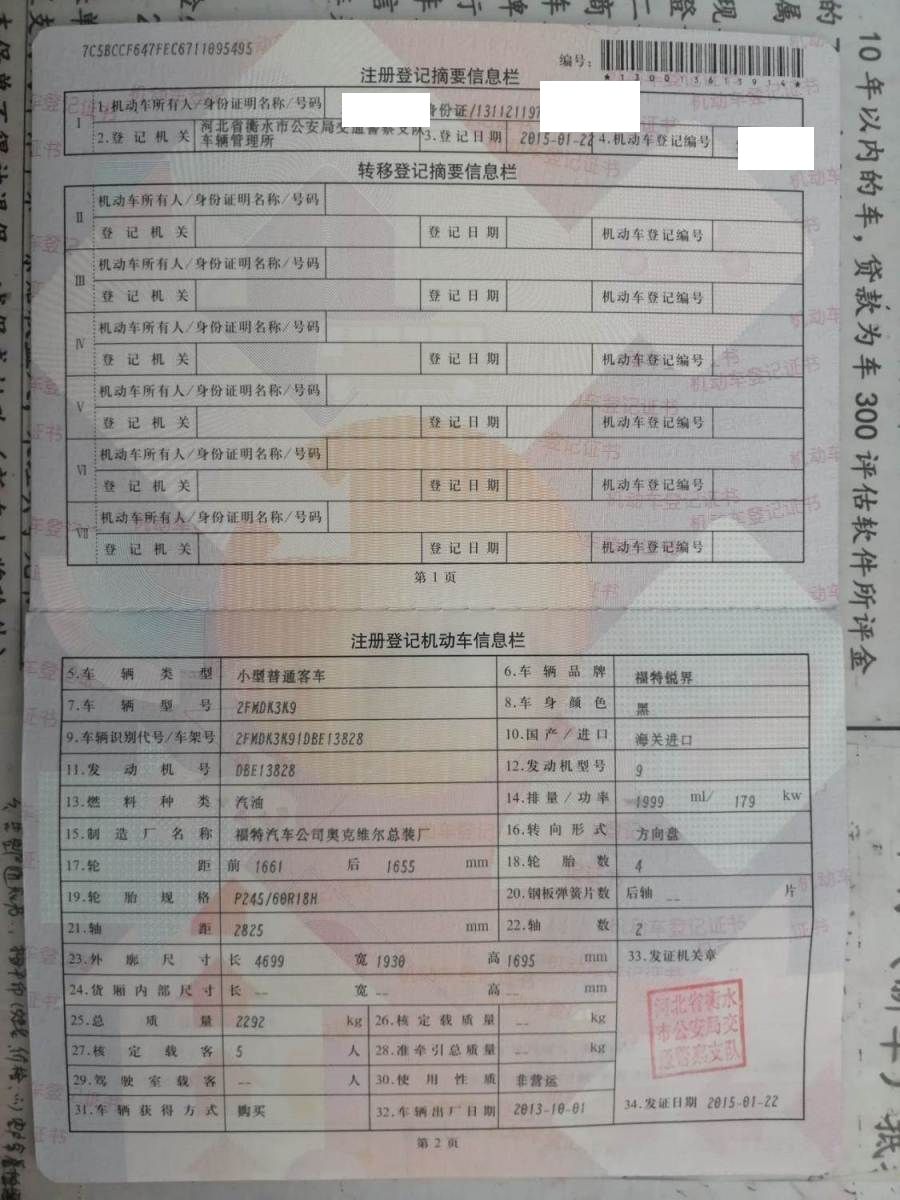 7C5BCCF647FEC6711095495
编号：
注册登记摘要信息栏
I
1.机动车所有人/身份证明名称/号码
身份证/1311211197
2.登记机关
河北省衡水市公安局交通警察支队车辆管理所
3.登记日期
2015-01-22
4.机动车登记编号
转移登记摘要信息栏
II
机动车所有人/身份证明名称/号码
登记机关
登记日期
机动车登记编号
III
机动车所有人/身份证明名称/号码
登记机关
登记日期
机动车登记编号
IV
机动车所有人/身份证明名称/号码
登记机关
登记日期
机动车登记编号
V
机动车所有人/身份证明名称/号码
登记机关
登记日期
机动车登记编号
VI
机动车所有人/身份证明名称/号码
登记机关
登记日期
机动车登记编号
VII
机动车所有人/身份证明名称/号码
登记机关
登记日期
机动车登记编号
第1页
注册登记机动车信息栏
5.车辆类型 小型普通客车 6.车辆品牌 福特锐界
7.车辆型号 2FMDK3K9 8.车身颜色 黑
9.车辆识别代号/车架号 2FMDK3K91DBE13828 10.国产/进口 海关进口
11.发动机号 DBE13828 12.发动机型号 9
13.燃料种类 汽油 14.排量/功率 1999 ml/ 179 kw
15.制造厂名称 福特汽车公司奥克维尔总装厂 16.转向形式 方向盘
17.轮距 前 1661 后 1655 mm 18.轮胎数 4
19.轮胎规格 P245/60R18H 20.钢板弹簧片数 后轴 -- 片
21.轴距 2825 mm 22.轴数 2
23.外廓尺寸 长 4699 宽 1930 高 1695 mm 33.发证机关章
24.货厢内部尺寸 长 -- 宽 -- 高 -- mm
25.总质量 2292 kg 26.核定载质量 -- kg
27.核定载客 5 人 28.准牵引总质量 -- kg
29.驾驶室载客 -- 人 30.使用性质 非营运
31.车辆获得方式 购买 32.车辆出厂日期 2013-10-01 34.发证日期 2015-01-22
河北省衡水
市公安局交
通警察支队
第2页
10年以内的车，贷款为车300评估软件所评金